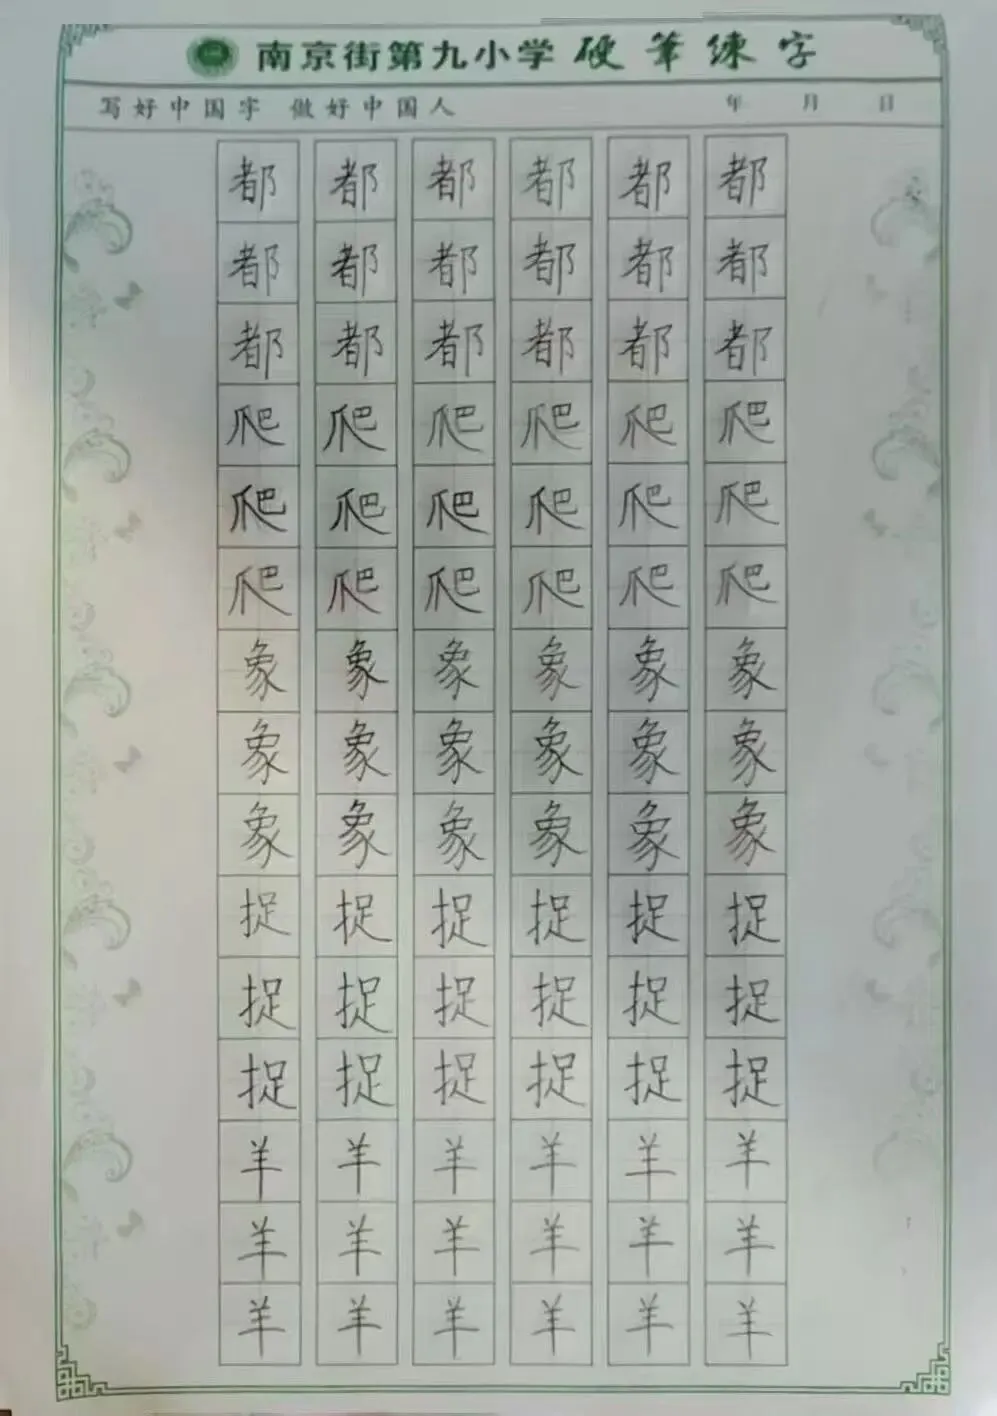 南京街第九小学 硬笔练字
写好中国字 做好中国人 年 月 日
都 都 都 都 都 都
都 都 都 都 都 都
都 都 都 都 都 都
爬 爬 爬 爬 爬 爬
爬 爬 爬 爬 爬 爬
爬 爬 爬 爬 爬 爬
象 象 象 象 象 象
象 象 象 象 象 象
象 象 象 象 象 象
捉 捉 捉 捉 捉 捉
捉 捉 捉 捉 捉 捉
捉 捉 捉 捉 捉 捉
羊 羊 羊 羊 羊 羊
羊 羊 羊 羊 羊 羊
羊 羊 羊 羊 羊 羊